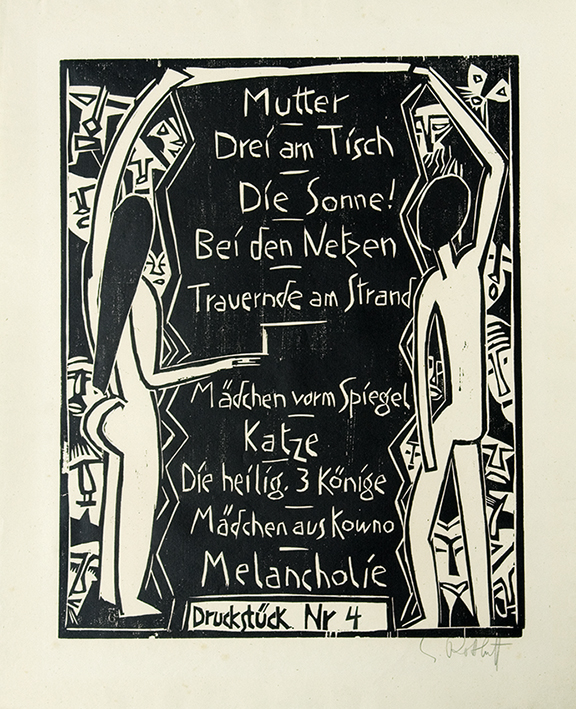 Mutter
Drei am Tisch
Die Sonne!
Bei den Netzen
Trauernde am Strand
Mädchen vorm Spiegel
Katze
Die heilig. 3 Könige
Mädchen aus Kowno
Melancholie
Druckstück Nr 4
S. Rottluff